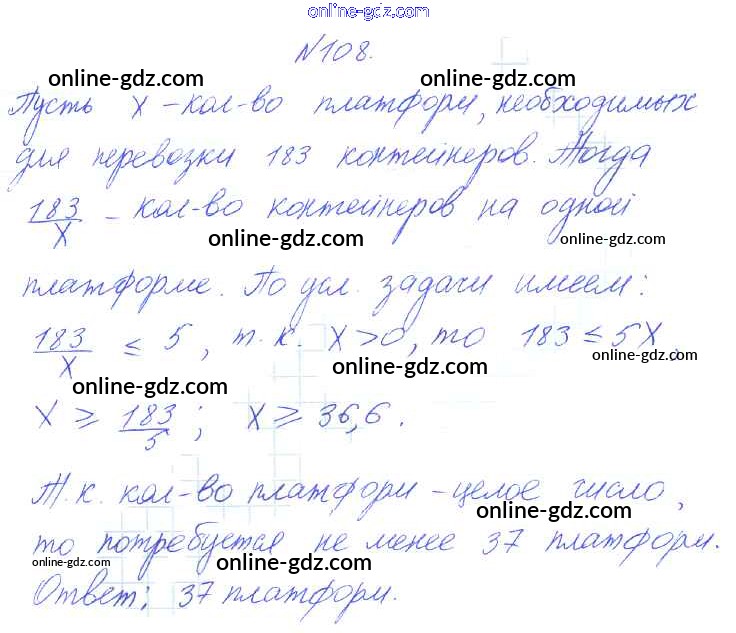 online-gdz.com
№108.
online-gdz.com online-gdz.com
Пусть x – кол-во платформ, необходимых
для перевозки 183 контейнеров. Тогда
183/x – кол-во контейнеров на одной
online-gdz.com online-gdz.com
платформе. По усл. задачи имеем:
183/x ≤ 5, т.к. x>0, то 183 ≤ 5x.
online-gdz.com
online-gdz.com
x ≥ 183/5; x ≥ 36,6.
Т.к. кол-во платформ – целое число,
online-gdz.com
то потребуется не менее 37 платформ.
online-gdz.com online-gdz.com
Ответ: 37 платформ.